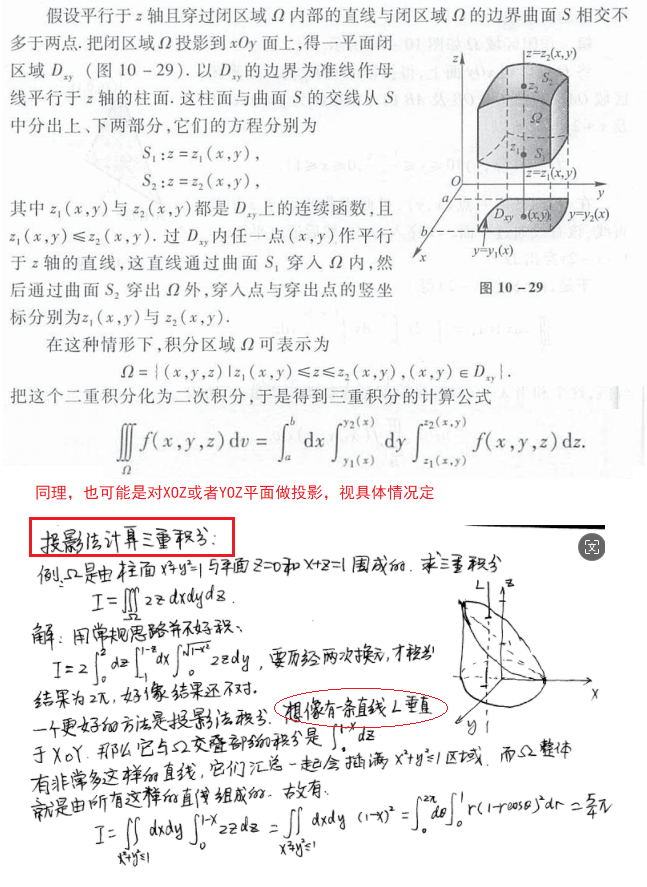 假设平行于 z 轴且穿过闭区域 Ω 内部的直线与闭区域 Ω 的边界曲面 S 相交不
多于两点. 把闭区域 Ω 投影到 xOy 面上, 得一平面闭
区域 D_{xy} (图 10-29). 以 D_{xy} 的边界为准线作母
线平行于 z 轴的柱面. 这柱面与曲面 S 的交线从 S
中分出上、下两部分, 它们的方程分别为
S₁: z = z₁(x,y),
S₂: z = z₂(x,y),
其中 z₁(x,y) 与 z₂(x,y) 都是 D_{xy} 上的连续函数, 且
z₁(x,y) ≤ z₂(x,y). 过 D_{xy} 内任一点 (x,y) 作平行
于 z 轴的直线, 这直线通过曲面 S₁ 穿入 Ω 内, 然
后通过曲面 S₂ 穿出 Ω 外, 穿入点与穿出点的竖坐
标分别为 z₁(x,y) 与 z₂(x,y).
z
z=z₂(x,y)
S₂
z₂
Ω
z₁
S₁
z=z₁(x,y)
O
a
y
b
D_{xy}
(x,y)
y=y₂(x)
x
y=y₁(x)
图 10-29
在这种情形下, 积分区域 Ω 可表示为
Ω = {(x,y,z) | z₁(x,y) ≤ z ≤ z₂(x,y), (x,y) ∈ D_{xy}}.
把这个二重积分化为二次积分, 于是得到三重积分的计算公式
∭_Ω f(x,y,z)dv = ∫_a^b dx ∫_{y₁(x)}^{y₂(x)} dy ∫_{z₁(x,y)}^{z₂(x,y)} f(x,y,z)dz.
同理，也可能是对XOZ或者YOZ平面做投影，视具体情况定
投影法计算三重积分:
例: Ω是由柱面 x²+y²=1 与平面 z=0 和 x+z=1 围成的. 求三重积分
I=∭_Ω 2z dxdydz.
解: 用常规思路并不好积:
I=2∫_0^2 dz ∫_1^{1-z} dx ∫_0^{√(1-x²)} 2z dy, 要历经两次换元, 才积出
结果为2π, 好像结果还不对.
一个更好的方法是投影法积分. 想像有一条直线L垂直
于XoY. 那么它与Ω交叠部分的积分是 ∫_0^{1-x} dz
有非常多这样的直线, 它们汇总一起会插满 x²+y²≤1 区域. 而Ω整体
就是由所有这样的直线组成的. 故有:
I=∬_{x²+y²≤1} dxdy ∫_0^{1-x} 2z dz = ∬_{x²+y²≤1} dxdy (1-x)² = ∫_0^{2π} dθ ∫_0^1 r(1-rcosθ)² dr = 5/4 π
L
z
x
y